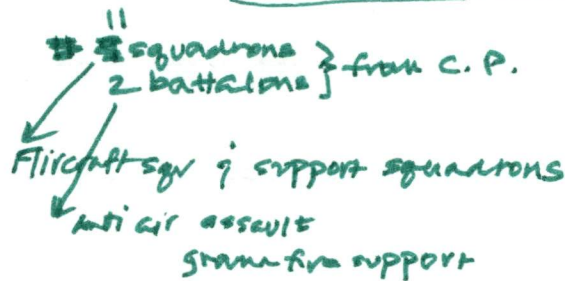 11
squadrons
2 battalons } from C.P.
Aircraft sqv & support squadrons
Anti air assault
ground fire support